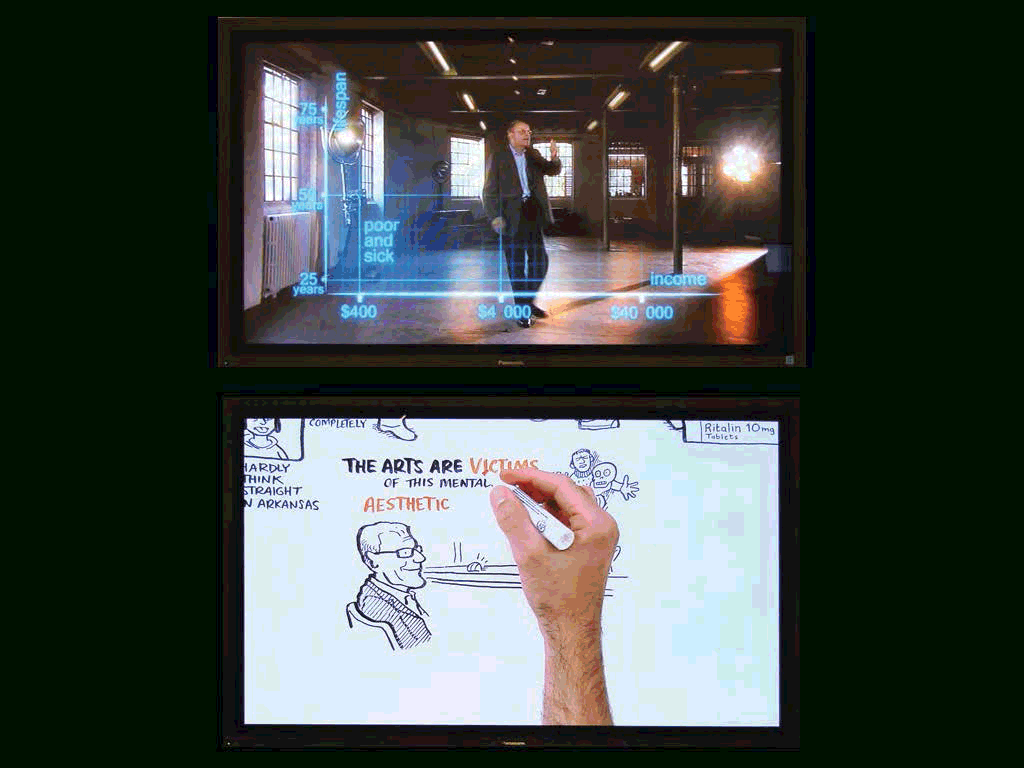 lifespan
75
years
50
years
poor
and
sick
25
years
income
$400
$4 000
$40 000
Panasonic
COMPLETELY
Ritalin 10mg
Tablets
HARDLY
THINK
STRAIGHT
N ARKANSAS
THE ARTS ARE VICTIMS
OF THIS MENTAL
AESTHETIC
Panasonic